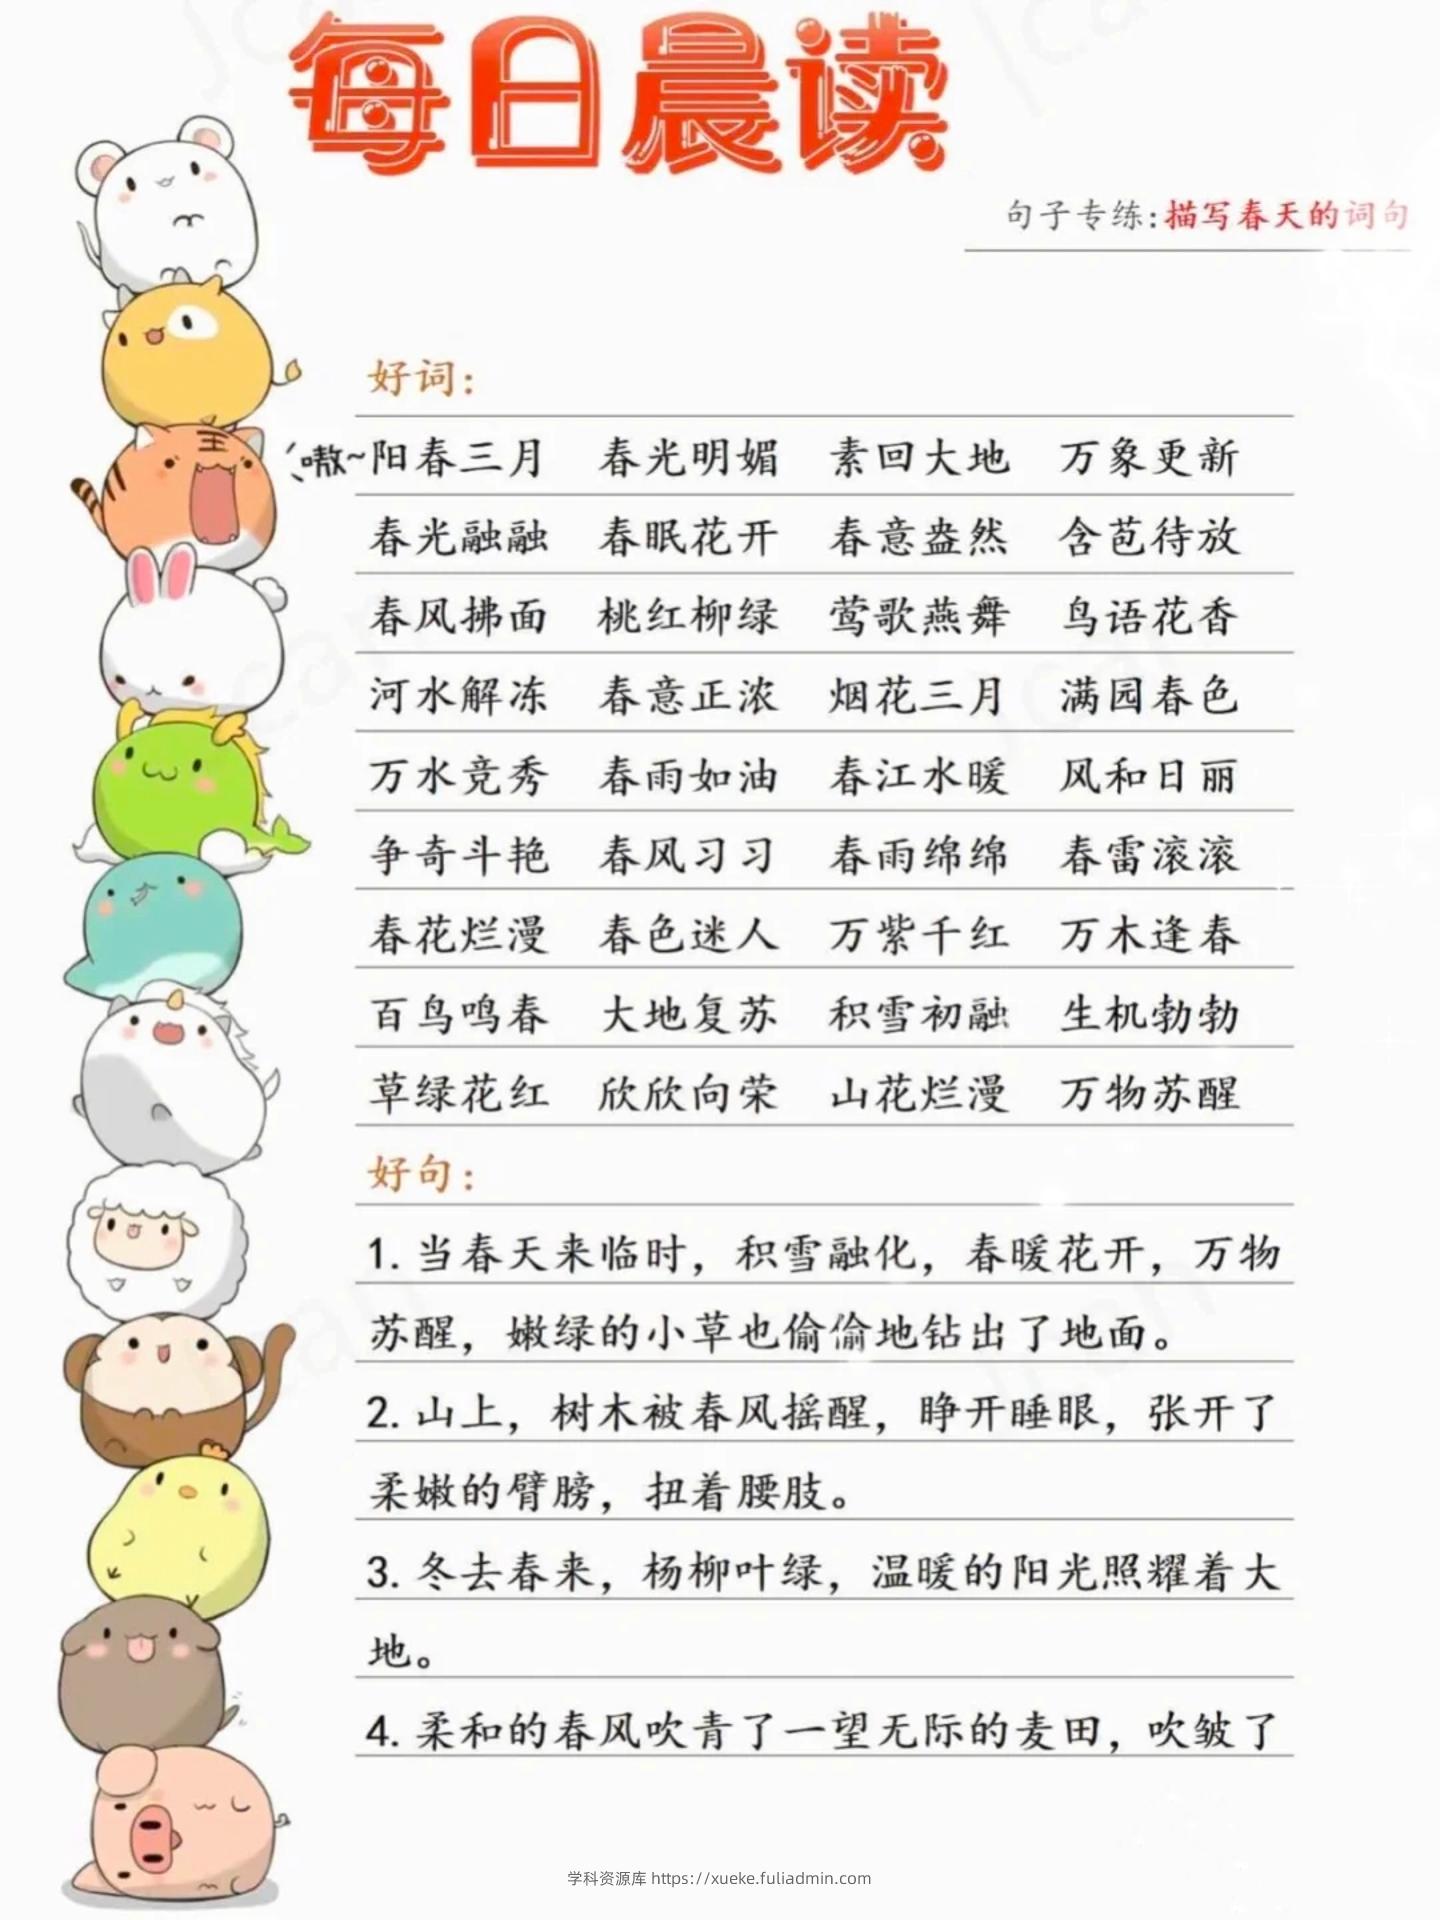 每日晨读
句子专练:描写春天的词句
好词：
嗷~
阳春三月 春光明媚 素回大地 万象更新
春光融融 春眠花开 春意盎然 含苞待放
春风拂面 桃红柳绿 莺歌燕舞 鸟语花香
河水解冻 春意正浓 烟花三月 满园春色
万水竞秀 春雨如油 春江水暖 风和日丽
争奇斗艳 春风习习 春雨绵绵 春雷滚滚
春花烂漫 春色迷人 万紫千红 万木逢春
百鸟鸣春 大地复苏 积雪初融 生机勃勃
草绿花红 欣欣向荣 山花烂漫 万物苏醒
好句：
1. 当春天来临时，积雪融化，春暖花开，万物
苏醒，嫩绿的小草也偷偷地钻出了地面。
2. 山上，树木被春风摇醒，睁开睡眼，张开了
柔嫩的臂膀，扭着腰肢。
3. 冬去春来，杨柳叶绿，温暖的阳光照耀着大
地。
4. 柔和的春风吹青了一望无际的麦田，吹皱了
学科资源库 https://xueke.fuliadmin.com